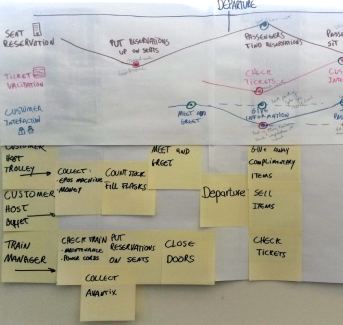 DEPARTURE
SEAT
RESERVATION
PUT RESERVATIONS
UP ON SEATS
PASSENGERS
FIND RESERVATIONS
PASSE
SIT
TICKET
VALIDATION
CHECK
TICKETS
CUS
INTE
CUSTOMER
INTERACTION
MEET AND
GREET
GIVE
INFORMATION
CUSTOMER
HOST
TROLLEY
COLLECT:
- EPOS MACHINE
- MONEY
COUNT STOCK
FILL FLASKS
MEET AND
GREET
GIVE AWAY
COMPLIMENTARY
ITEMS
CUSTOMER
HOST
BUFFET
Departure
SELL
ITEMS
TRAIN
MANAGER
CHECK TRAIN
- MAINTENANCE
- POWER CORDS
PUT
RESERVATIONS
ON SEATS
CLOSE
DOORS
CHECK
TICKETS
COLLECT
AVANTIX